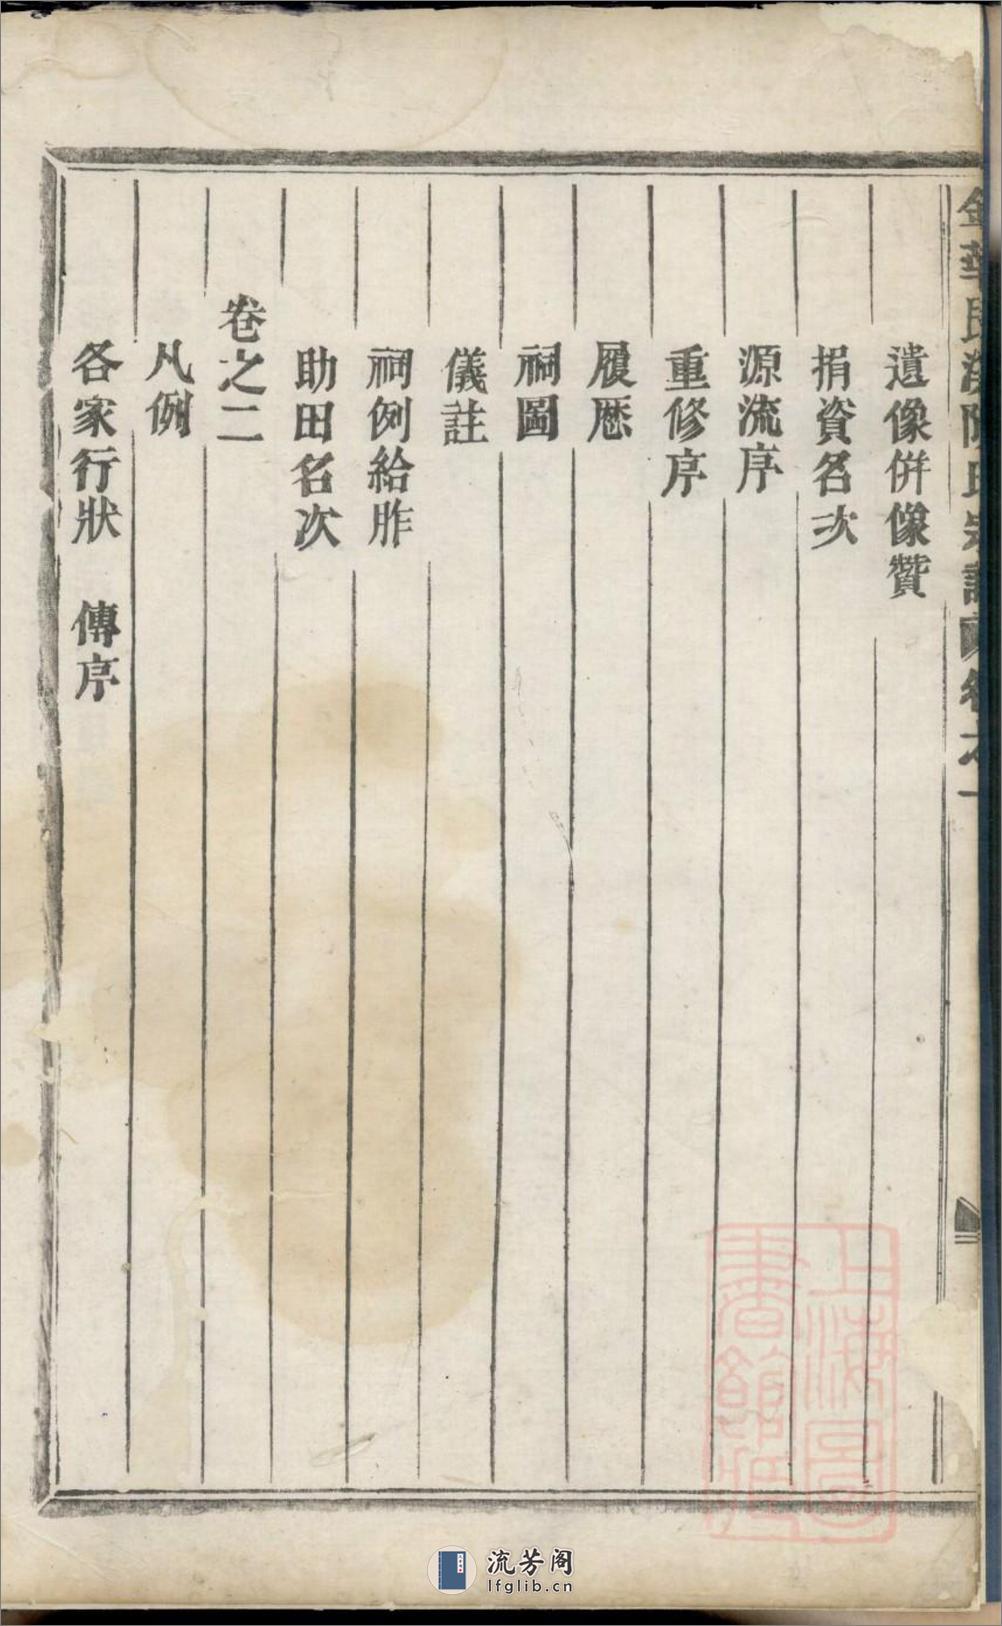 遺像併像贊
捐資名次
源流序
重修序
履歷
祠圖
儀註
祠例給胙
助田名次
卷之二
凡例
各家行狀 傳序
上海圖書館藏
流芳阁
lfglib.cn